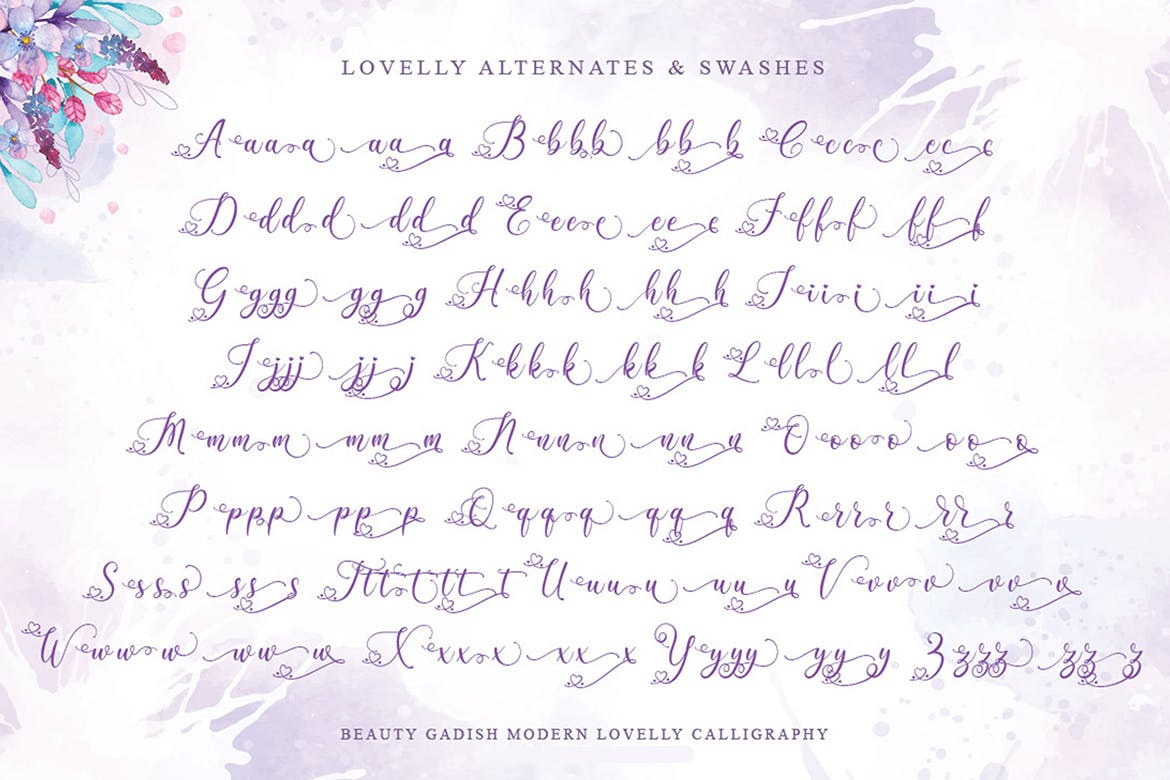 LOVELLY ALTERNATES & SWASHES
Aaaaaa aa a Bbbbb bb b Cccccc cc c
Ddddd dd d Eeeeee ee e Fffff ff f
Ggggg gg g Hhhhh hh h Iiiiii ii i
Jjjjj jj j Kkkkk kk k Lllll ll l
Mmmmm mm m Nnnnn nn n Oooooo oo o
Ppppp pp p Qqqqq qq q Rrrrrr rr r
Sssss ss s Tttttt tt t Uuuuu uu u Vvvvv vv v
Wwwww ww w Xxxxx xx x Yyyyy yy y Zzzzz zz z
BEAUTY GADISH MODERN LOVELLY CALLIGRAPHY